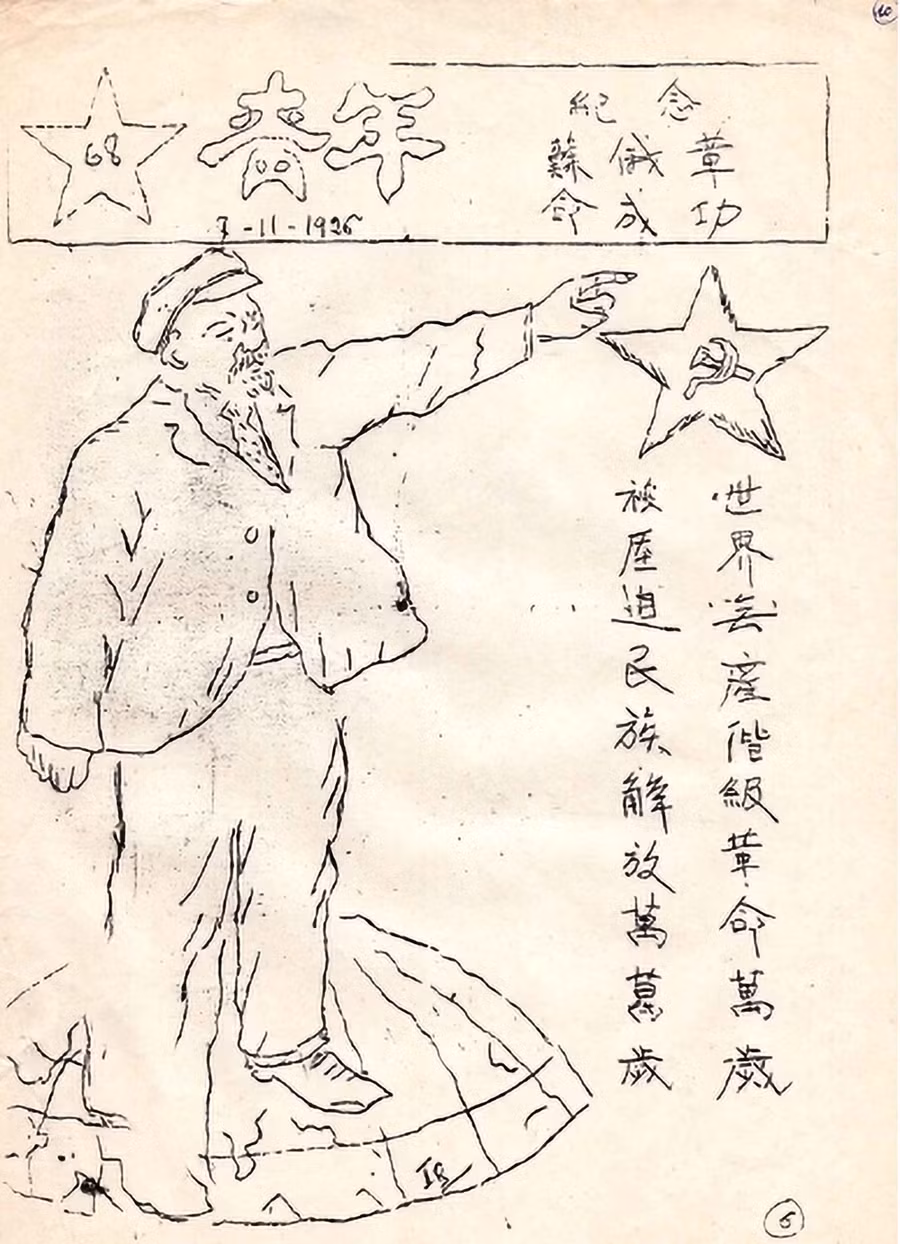 68
青年
7-11-1926
紀念
蘇俄革
命成功
世界無產階級革命萬歲
被壓迫民族解放萬萬歲